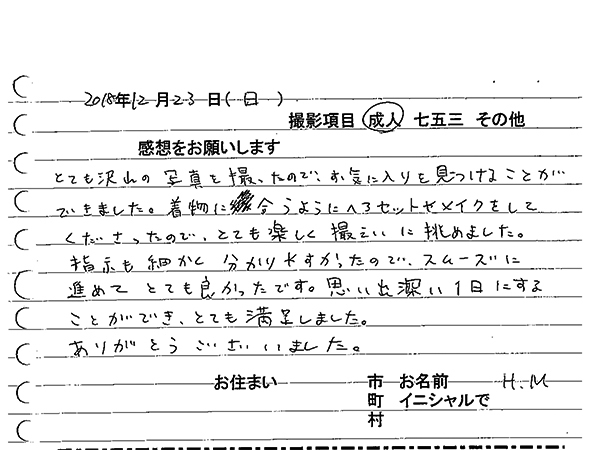 2018年12月23日(日)
撮影項目 成人 七五三 その他
感想をお願いします
とても沢山の写真を撮ったので、お気に入りを見つけることが
できました。着物に合うようにヘアセットやメイクをして
くださったので、とても楽しく撮影に挑めました。
指示も細かく分かりやすかったので、スムーズに
進めてとても良かったです。思い出深い1日にする
ことができ、とても満足しました。
ありがとうございました。
お住まい 市 お名前 H.M
町 イニシャルで
村